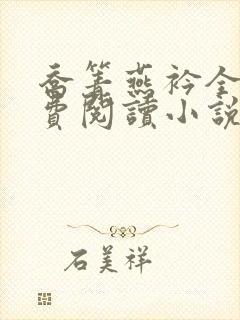 喬箐燕衿全
費閱讀小說
石美祥